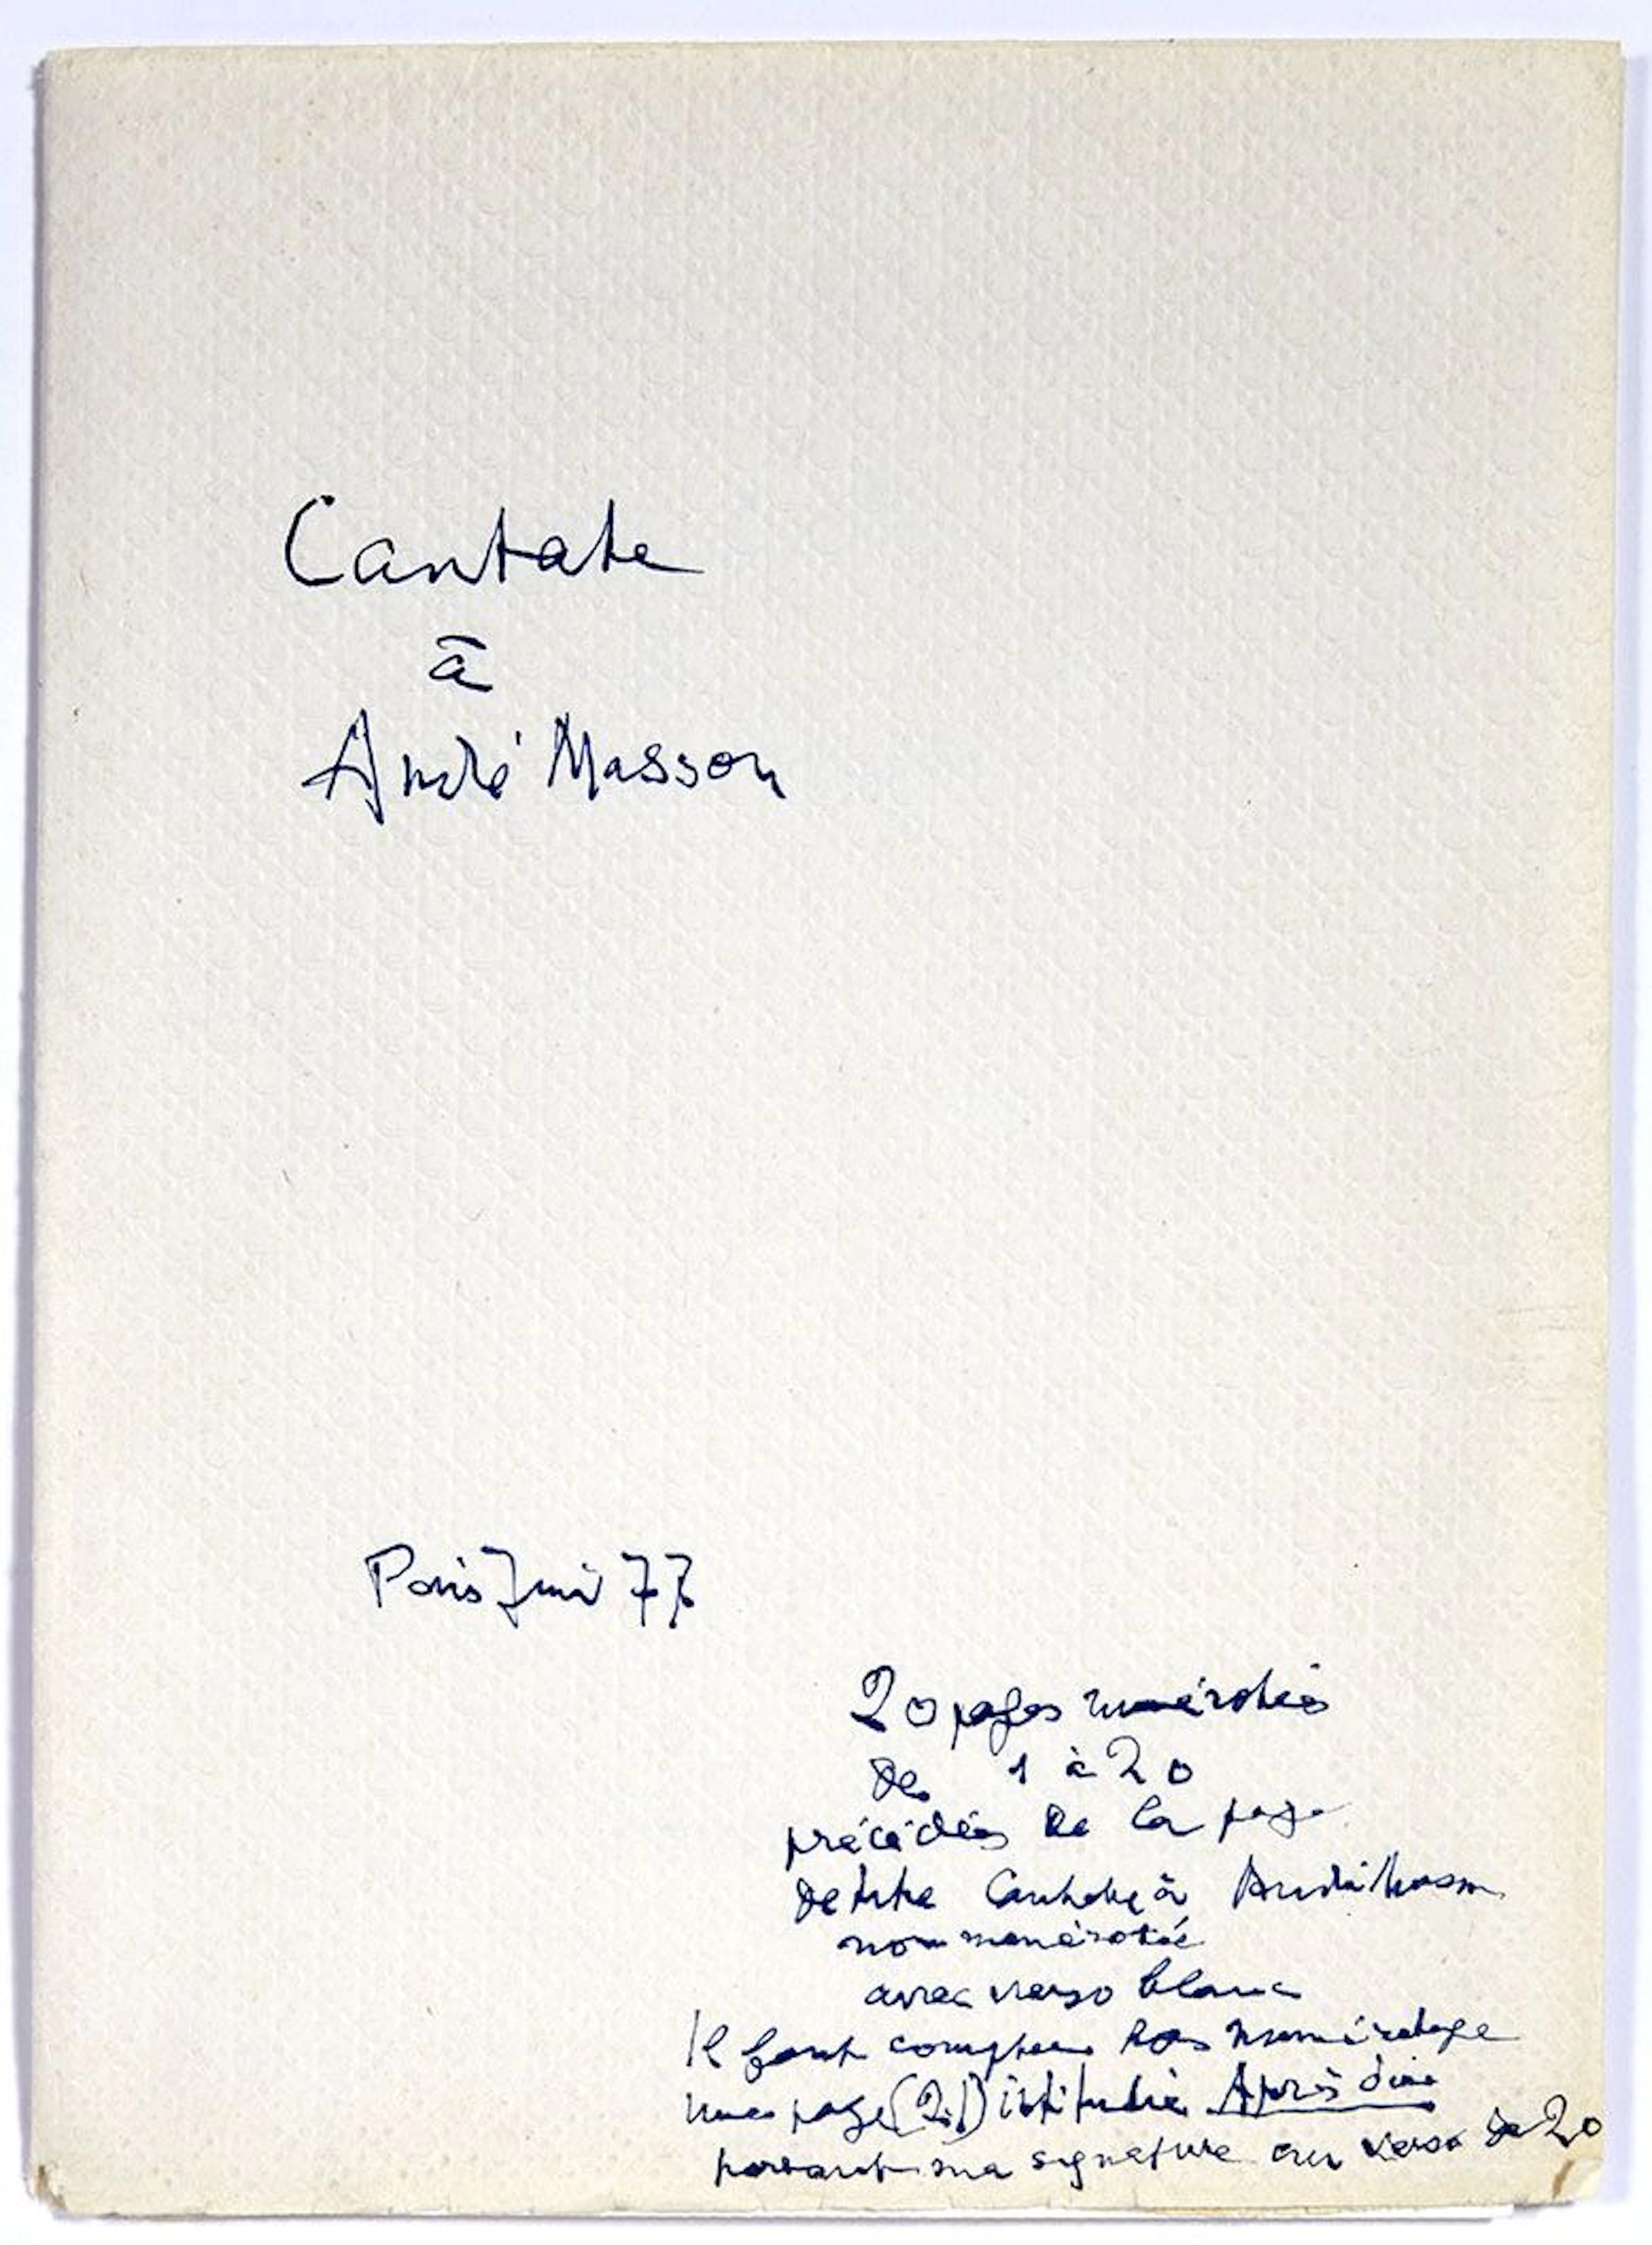 Cantate
à
André Masson
Paris Juin 77
20 pages numérotées
de 1 à 20
précédées de la page
de titre Cantate à André Masson
non numérotée
avec verso blanc
Il faut compter hors numérotage
une page (21) intitulée Après dire
portant ma signature au verso de 20